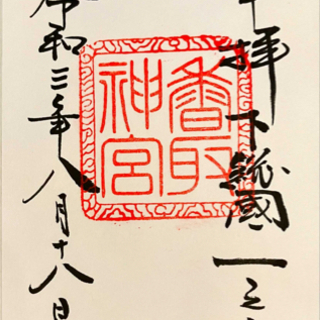 奉拝 下総國一之宮
香取
神宮
令和三年八月十八日